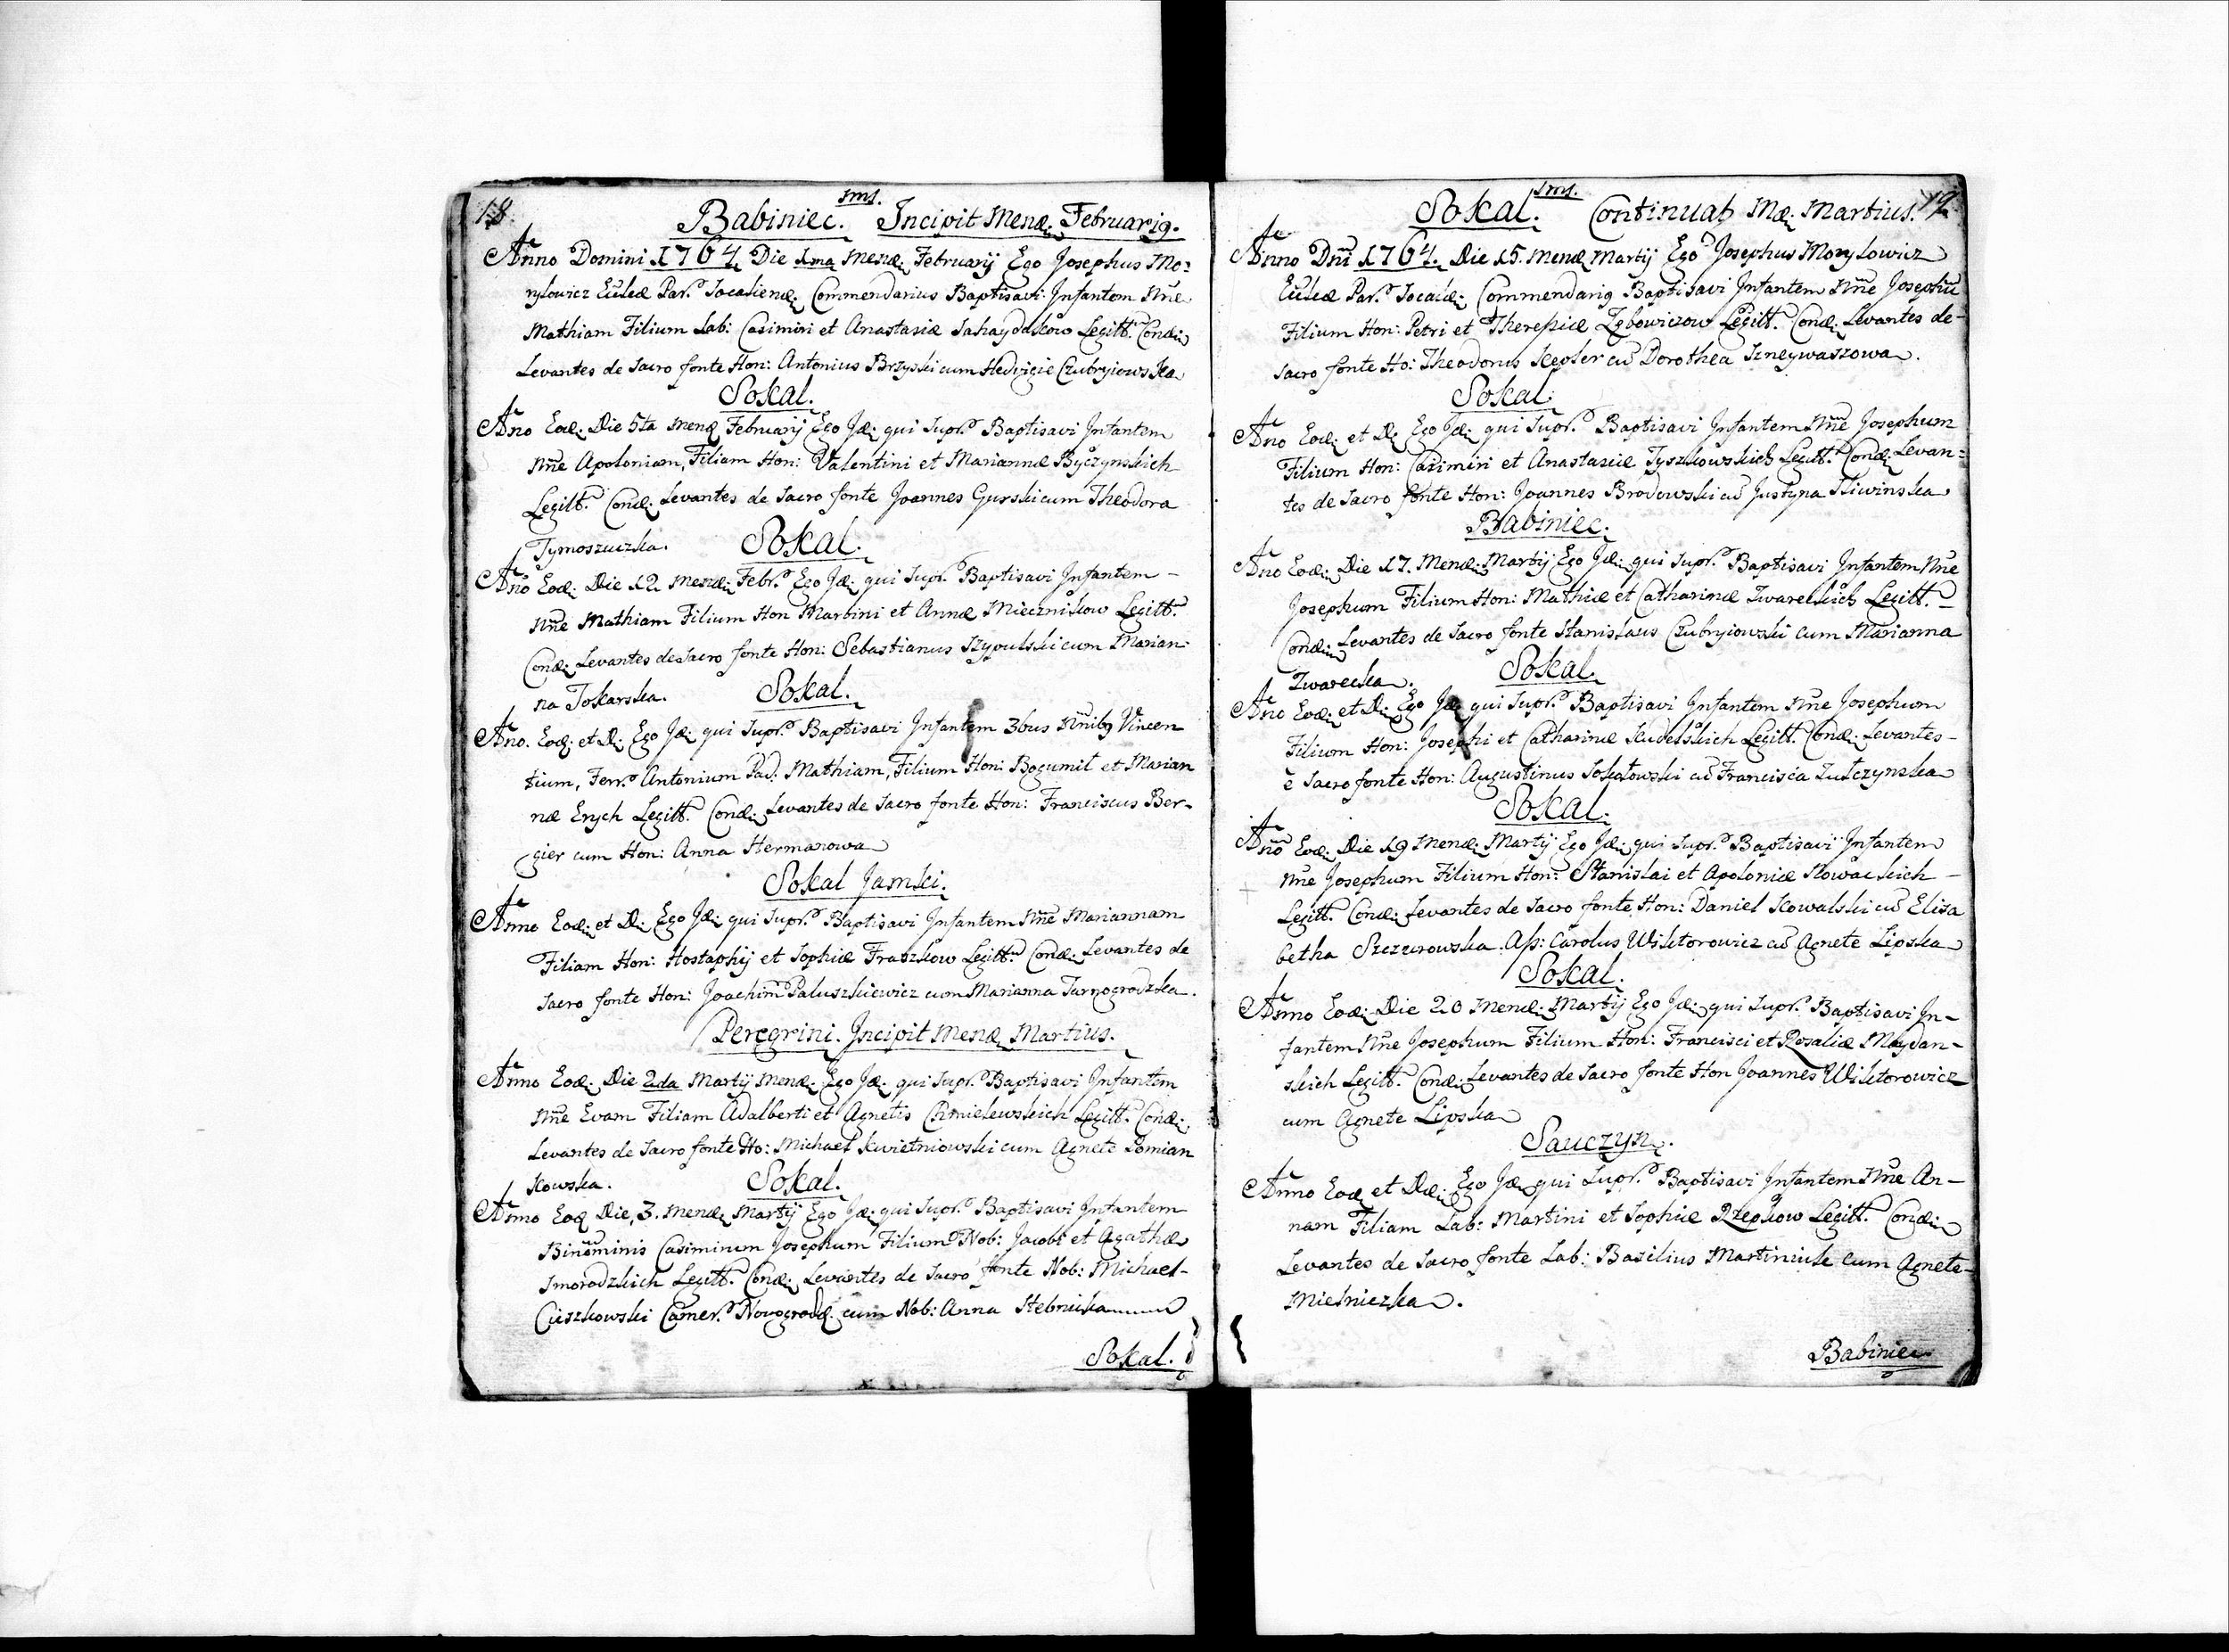 18.
Jms.
Babiniec. Incipit Mensæ Februarig.
Anno Domini 1764. Die 1ma Mensæ Februarij Ego Josephus Mo=
rylowicz Eūlæ Par. Socaliensæ Commendarius Baptisavi Infantem Nn̄e
Mathiam Filium Lab: Casimiri et Anastasiæ Sahaydakow Legitt. Condi
Levantes de Sacro fonte Hon: Antonius Brzyski cum Hedvigie Czubryiowska
Sokal.
Ano Eod: Die 5ta Mensæ Februarij Ego Jd: qui Supr. Baptisavi Infantem
Nn̄e Apoloniam, Filiam Hon: Valentini et Mariannæ Byczynskich
Legitt. Cond: Levantes de Sacro fonte Joannes Gurski cum Theodora
Tymoszuczka.
Sokal.
Ano Eod: Die 12 Mensæ Febr. Ego Jd: qui Supr. Baptisavi Infantem –
Nn̄e Mathiam Filium Hon Martini et Annæ Miecznikow Legitt.
Cond: Levantes de Sacro fonte Hon: Sebastianus Szypulski cum Marian
na Tokarska.
Sokal.
Ano. Eod: et D: Ego Jd: qui Supr. Baptisavi Infantem 3bus Nn̄ibg Vincen
tium, Ferr. Antonium Pad: Mathiam, Filium Hon: Bogumil et Marian
næ Erych Legitt. Cond: Levantes de Sacro fonte Hon: Franciscus Ber-
gier cum Hon: Anna Hermanowa
Sokal Jamki.
Anno Eod: et D: Ego Jd: qui Supr. Baptisavi Infantem Nn̄e Mariannam
Filiam Hon: Hostaphij et Sophiæ Fraszkow Legitt. Cond: Levantes de
Sacro fonte Hon: Joachim Paluszkiewicz cum Marianna Tarnogrodzka.
Peregrini. Incipit Mensæ Martius.
Anno Eod: Die 2da Martij Mensæ Ego Jd: qui Supr. Baptisavi Infantem
Nn̄e Evam Filiam Adalberti et Agnetis Chmielewskich Legitt. Cond:
Levantes de Sacro fonte Ho: Michael Kwietniowski cum Agnete Pomian
kowska.
Sokal.
Anno Eod Die, 3. Mensæ Martij Ego Jd: qui Supr. Baptisavi Infantem
Binōminis Casimirum Josephum Filium Nob: Jacobi et Agathæ
Smorodzkich Legitt. Cond: Levantes de Sacro fonte Nob: Michael-
Ciszkowski Camer. Novogrod: cum Nob: Anna Stebnicka
Sokal.
19
Jms.
Sokal. Continuat Mæ. Martius.
Anno Dn̄i 1764. Die 15. Mensæ Martij Ego Josephus Morylowicz
Eūlæ Par. Socaliæ Commendarig Baptisavi Infantem Nn̄e Josephū
Filium Hon: Petri et Theresiæ Zębowiczow Legitt. Cond: Levantes de-
Sacro fonte Ho: Theodorus Kesler cū Dorothea Szneywaszowa.
Sokal.
Ano Eod: et D: Ego Jd: qui Supr. Baptisavi Infantem Nn̄e Josephum
Filium Hon: Casimiri et Anastasiæ Tyszkowskich Legitt. Cond: Levan=
tes de Sacro fonte Hon: Joannes Brodowski cū Justyna Sliwinska
Babiniec.
Ano Eod: Die 17. Mensæ Martij Ego Jd: qui Supr. Baptisavi Infantem Nn̄e
Josephum Filium Hon: Mathiæ et Catharinæ Zwareckich Legitt. –
Cond: Levantes de Sacro fonte Stanislaus Czubryiowski cum Marianna
Zwarecka.
Sokal.
Ano Eod: et D: Ego Jd: qui Supr. Baptisavi Infantem Nn̄e Josephum
Filium Hon: Josephi et Catharinæ Kudelskich Legitt. Cond: Levantes-
e Sacro fonte Hon: Augustinus Sokołowski cū Francisca Zulczynska
Sokal.
Ano Eod: Die 19 Mensæ Martij Ego Jd: qui Supr. Baptisavi Infantem
Nn̄e Josephum Filium Hon: Stanislai et Apoloniæ Nowackich –
Legitt. Cond: Levantes de Sacro fonte Hon: Daniel Kowalski cū Elisa
betha Szczurowska. Ass: Carolus Wiktorowicz cū Agnete Lipska
Sokal.
Anno Eod: Die 20 Mensæ Martij Ego Jd: qui Supr. Baptisavi In-
fantem Nn̄e Josephum Filium Hon: Francisci et Rosaliæ Maydan-
skich Legitt. Cond: Levantes de Sacro fonte Hon Joannes Wiktorowicz
cum Agnete Lipska
Sauczyn.
Anno Eod et D: Ego Jd: qui Supr. Baptisavi Infantem Nn̄e An-
nam Filiam Lab: Martini et Sophiæ Rzepkow Legitt. Cond:
Levantes de Sacro fonte Lab: Basilius Martiniuk cum Agnete-
Mielniczka.
Babiniec